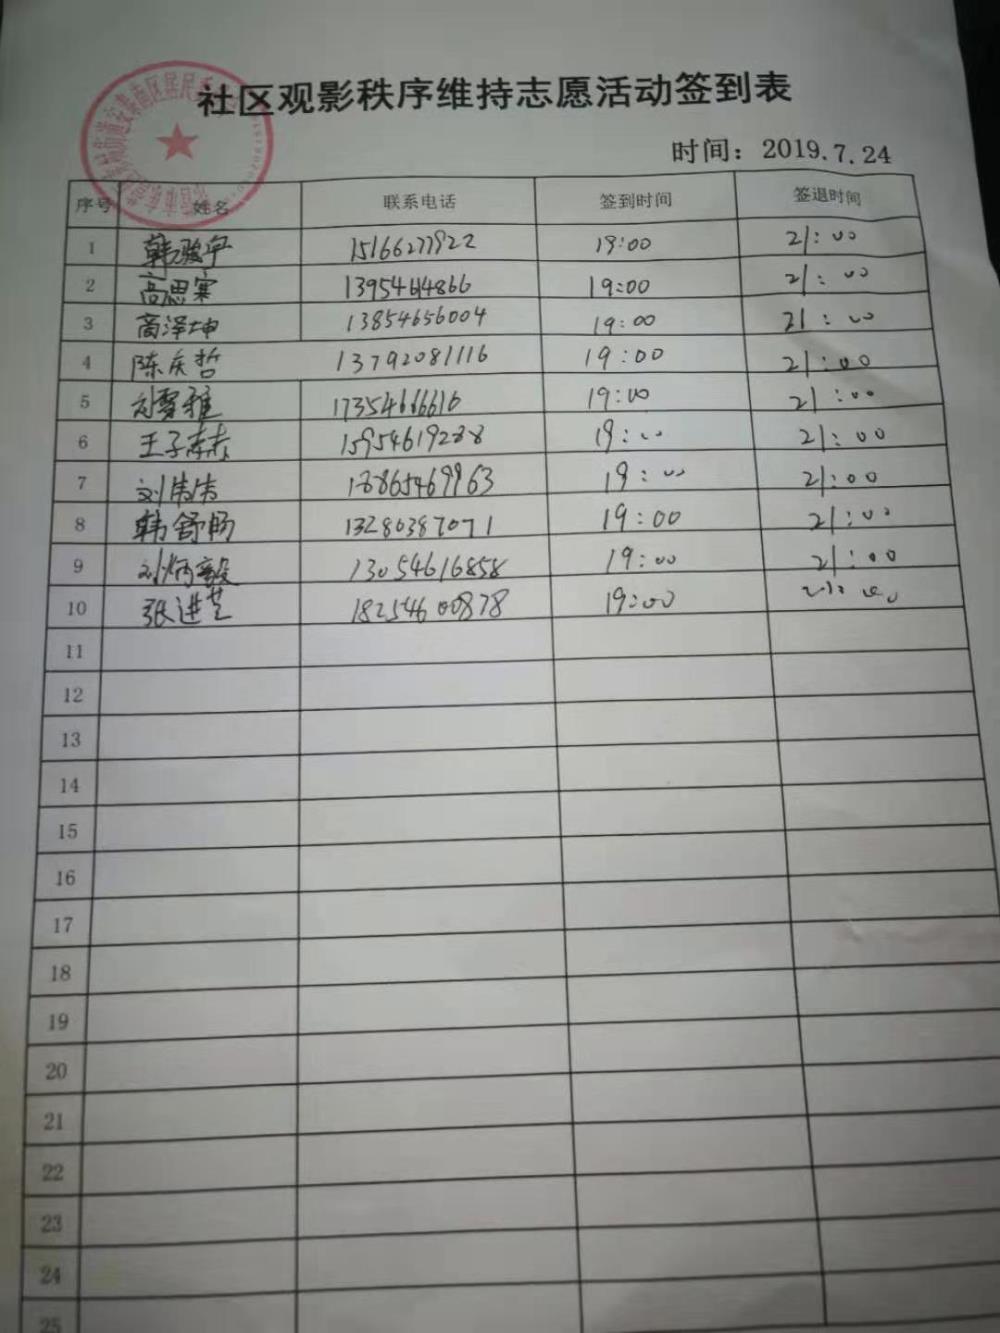 社区观影秩序维持志愿活动签到表
时间：2019.7.24
序号 姓名 联系电话 签到时间 签退时间
1 韩骏宇 15166277922 19:00 21:00
2 高思寒 13954614866 19:00 21:00
3 商泽坤 13854656004 19:00 21:00
4 陈庆哲 13792081116 19:00 21:00
5 刘雪雅 17354666616 19:00 21:00
6 王子 15954619288 19:00 21:00
7 刘伟伟 18865469963 19:00 21:00
8 韩舒肠 13280387071 19:00 21:00
9 刘炳毅 13054616858 19:00 21:00
10 张进芝 18254600878 19:00
11
12
13
14
15
16
17
18
19
20
21
22
23
24
25